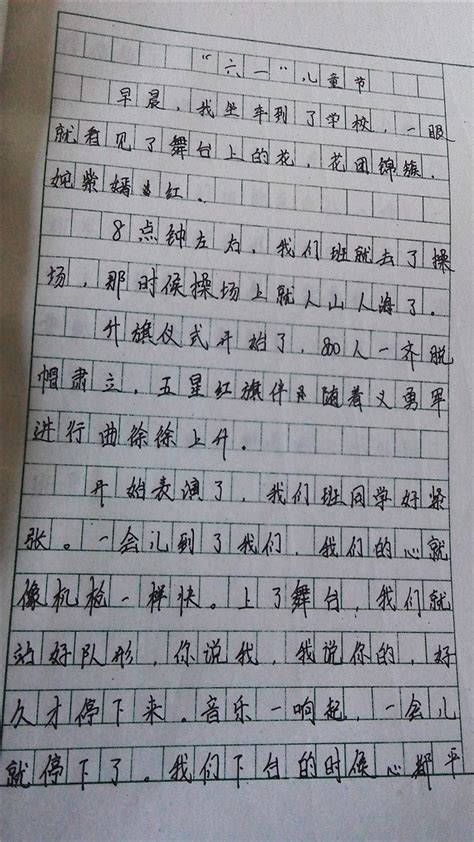 “六一”儿童节
早晨，我坐车到了学校，一眼
就看见了舞台上的花，花团锦簇，
姹紫嫣红。
8点钟左右，我们班就去了操
场，那时候操场上就人山人海了。
升旗仪式开始了，800人一齐脱
帽肃立，五星红旗伴随着义勇军
进行曲徐徐上升。
开始表演了，我们班同学好紧
张。一会儿到了我们，我们的心就
像机枪一样快。上了舞台，我们就
站好队形，你说我，我说你的，好
久才停下来。音乐一响起，一会儿
就停下了。我们下台的时候心都平